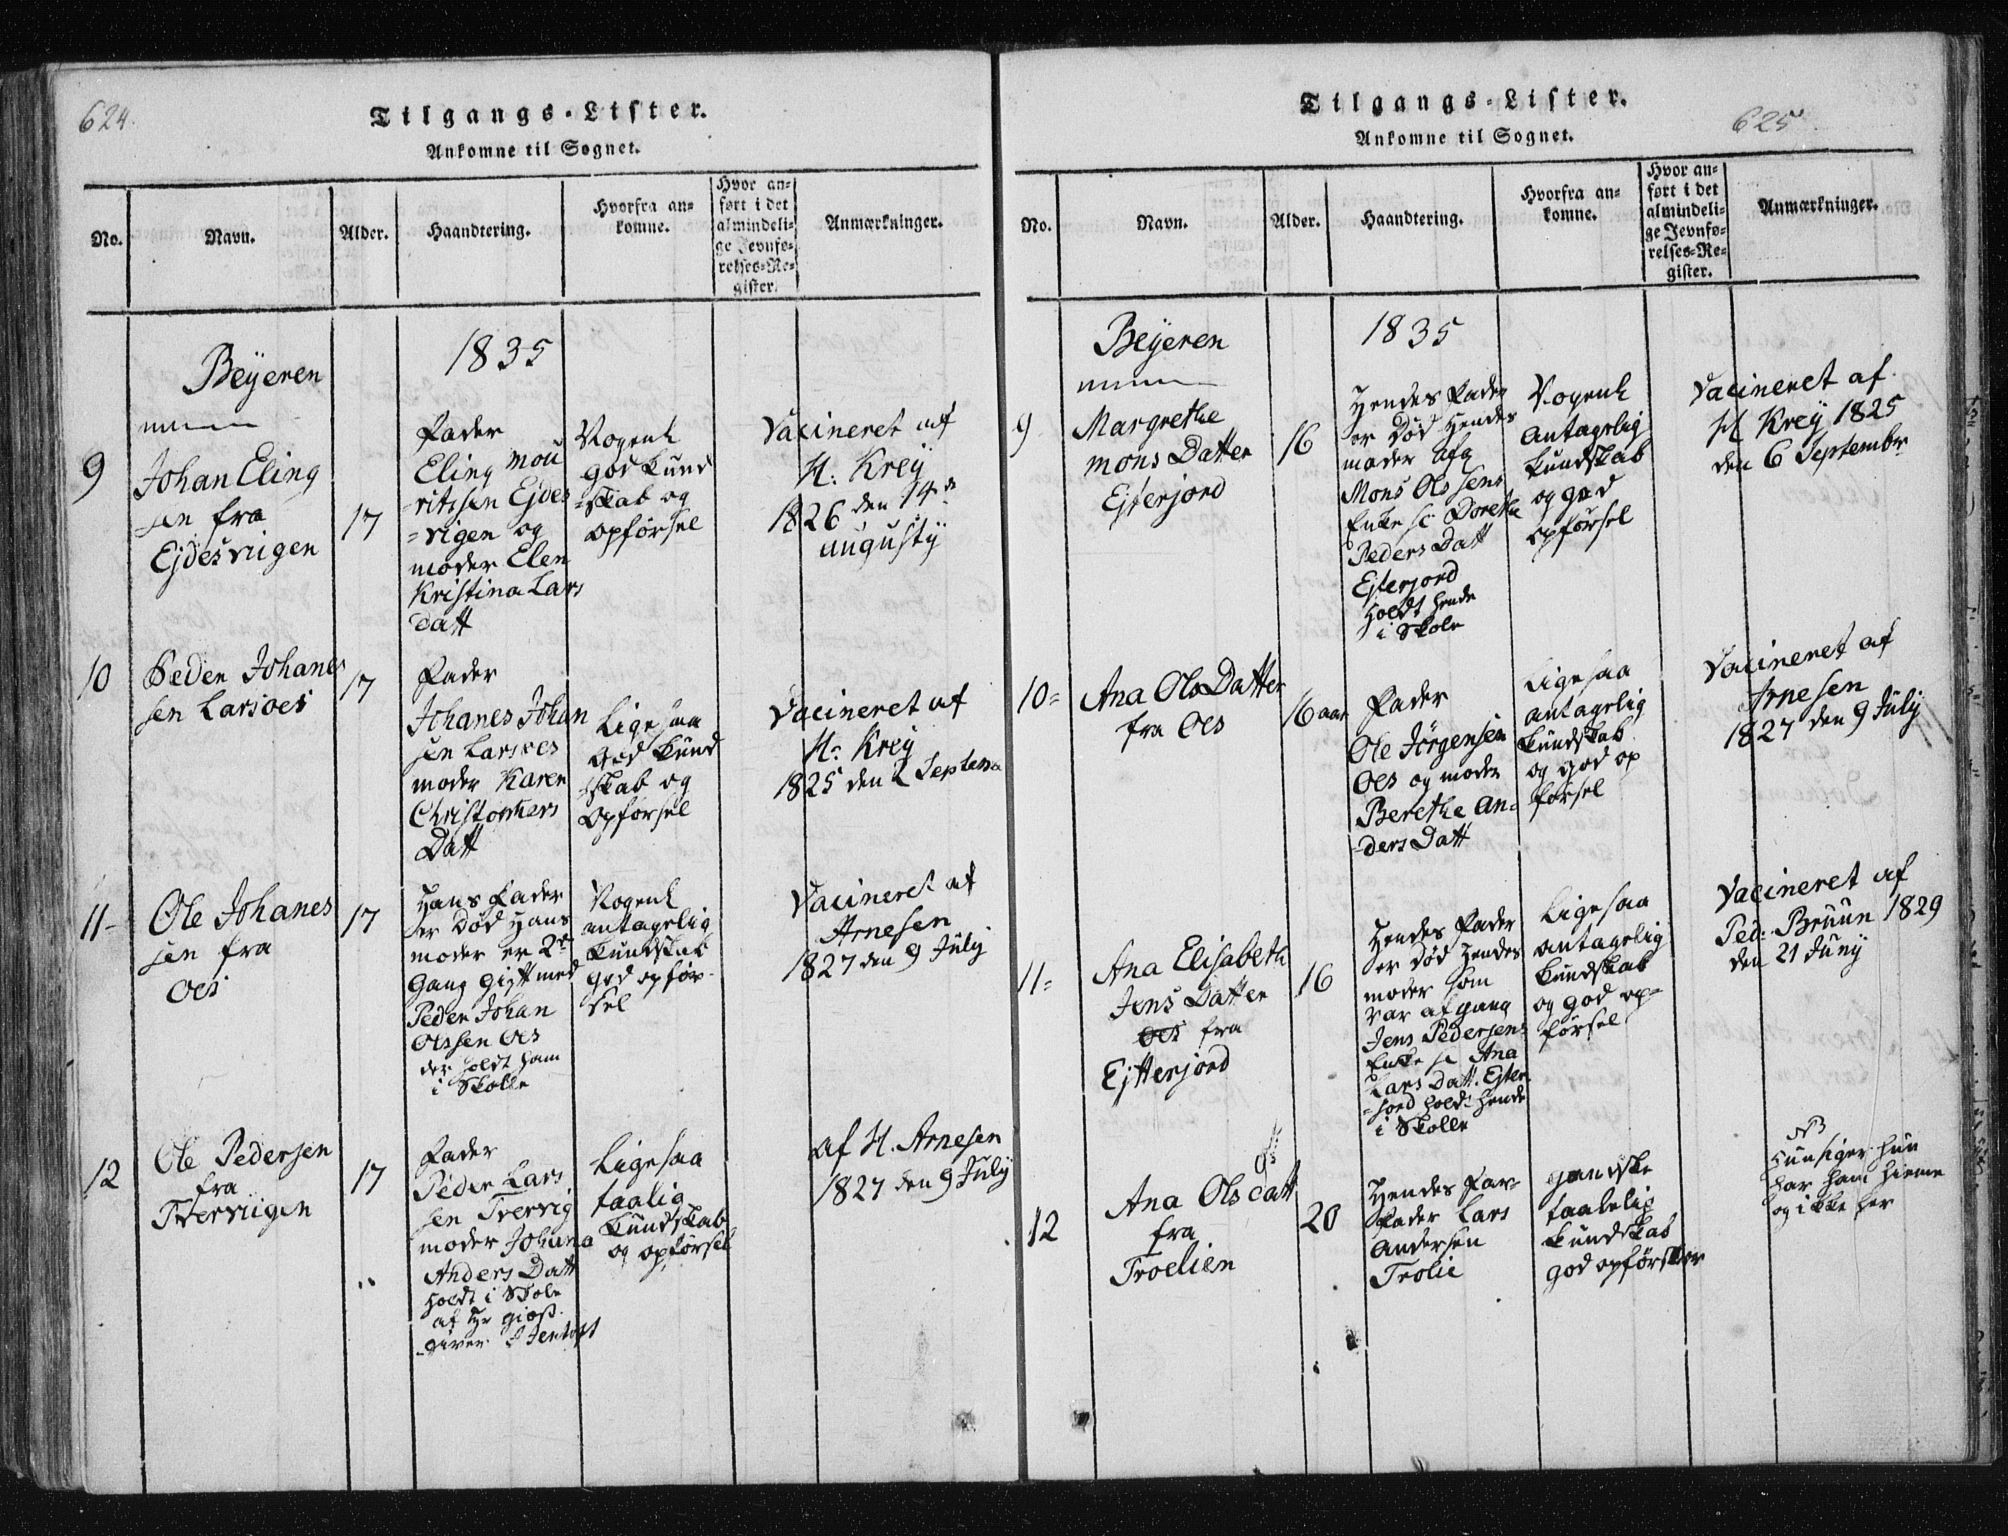 624.
Tilgangs-Lister.
Ankomne til Sognet.
No.
Navn.
Alder.
Haandtering.
Hvorfra an-
komne.
Hvor an-
ført i det
almindeli-
ge Jevnfø-
relses-Re-
gister.
Anmærkninger.
Beyeren
1835
9
Johan Eling
-sen fra
Ejdesviigen
17
Fader
Eling Mou
-ritssen Ejdes
-vigen og
moder Elen
Kristina Lars
datt
god kund
-skab og
opførsel
Vacineret af
H: Kreÿ
1826 den 14de
augustÿ
10
Peder Johanes
sen Larsoes
17
Fader
Johanes Johan
sen Larsoes
moder Karen
Christophers
Datt
Ligesaa
god kund
-skab og
opførsel
Vacineret af
H: Kreÿ
1825 den 2 Septem
11-
Ole Johanes
sen fra
Oes
17
Hans Fader
er Død Hans
moder er 2de
Gang gift med
Peder Johan
Olssen Oes
der holdt ham
i Skolle
antagelig
kundskab
god opfør-
sel
Vacineret af
Arnesen
1827 den 9 Julÿ
12
Ole Pedersen
fra
Tverviigen
17
Fader
Peder Lars
sen Tvervig
moder Johana
Anders Datt
holdt i Skole
af Hr
Ligesaa
taalig
kundskab
og opførsel
af H. Arnesen
1827 den 9 Julÿ
625
Tilgangs-Lister.
Ankomne til Sognet.
No.
Navn.
Alder.
Haandtering.
Hvorfra an-
komne.
Hvor an-
ført i det
almindeli-
ge Jevnfø-
relses-Re-
gister.
Anmærkninger.
Beyeren
1835
9
Margrethe
Mons Datter
Ejterjord
16
Hendes Fader
er Død Hendes
moder afg
Mons Olssens
Enke Dorethe
Peders Datt
Ejterjord
holdt hende
i Skole
antagelig
kundskab
og god
opførsel
Vacineret af
H Kreÿ 1825
den 6 Septembr
10=
Ana Ols Datter
fra Oes
16 aar
Fader
Ole Jörgensen
Oes og moder
Berethe An-
-ders Datt
Ligesaa
antagelig
kundskab
og god op
førsel
Vacineret af
Arnesen
1827 den 9 Julÿ
11=
Ana Elisabeth
Jens Datter
Oes fra
Ejtterjord
16
Hendes Fader
er Død Hendes
moder som
var afgang
Jens Pedersens
Enke Ana
Lars Datt. Ejter
-jord holdt hende
i Skolle
Ligesaa
antagelig
kundskab
og god op-
førsel
Vacineret af
Ped: Bruun 1829
den 21 Junÿ
12
Ana Ols datt
fra
Troelien
20
Hendes Far-
Fader Lars
Andersen
Trolie
gandske
taalelig
kundskab
god opførsel
NB
hun siger hun
har ham hieme
og ikke her